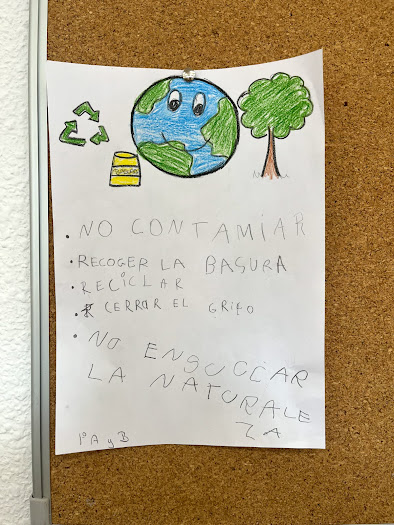 • NO CONTAMIAR
• RECOGER LA BASURA
• RECICLAR
• CERRAR EL GRIFO
• NO ENSUCIAR
LA NATURALE
ZA
1º A y B